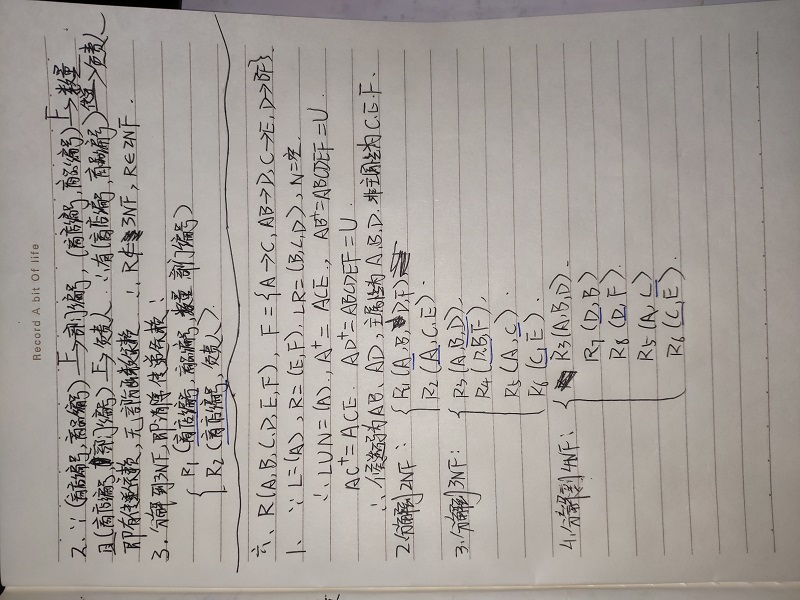 Record A bit Of life
2. ∵(商店编号,商品编号) F→ 部门编号, (商店编号,商品编号) F→ 数量
且(商店编号,部门编号) F→ 负责人 ∴有(商店编号,商品编号) 传递→ 负责人
即有传递依赖, 无部分函数依赖 ∴R∉3NF, R∈2NF.
3. 分解到3NF, 即消除传递依赖:
R1 (商店编号,商品编号,数量,部门编号)
R2 (商店编号, 负责人).
六、R(A,B,C,D,E,F), F={A→C, AB→D, C→E, D→BF}
1. ∵L=(A), R=(E,F). LR=(B,C,D), N=空
∴LUN=(A)., A+=ACE., AB+=ABCDEF=U
AC+=ACE. AD+=ABCDEF=U.
∴候选码为AB、AD, 主属性为A.B.D. 非主属性为C.E.F.
2. 分解到2NF:
R1(A,B,D,F)
R2(A,C,E).
3. 分解到3NF:
R3(A,B,D).
R4(D,B,F).
R5(A,C)
R6(C,E).
4. 分解到4NF:
R3(A,B,D).
R7(D,B)
R8(D,F).
R5(A,C)
R6(C,E).